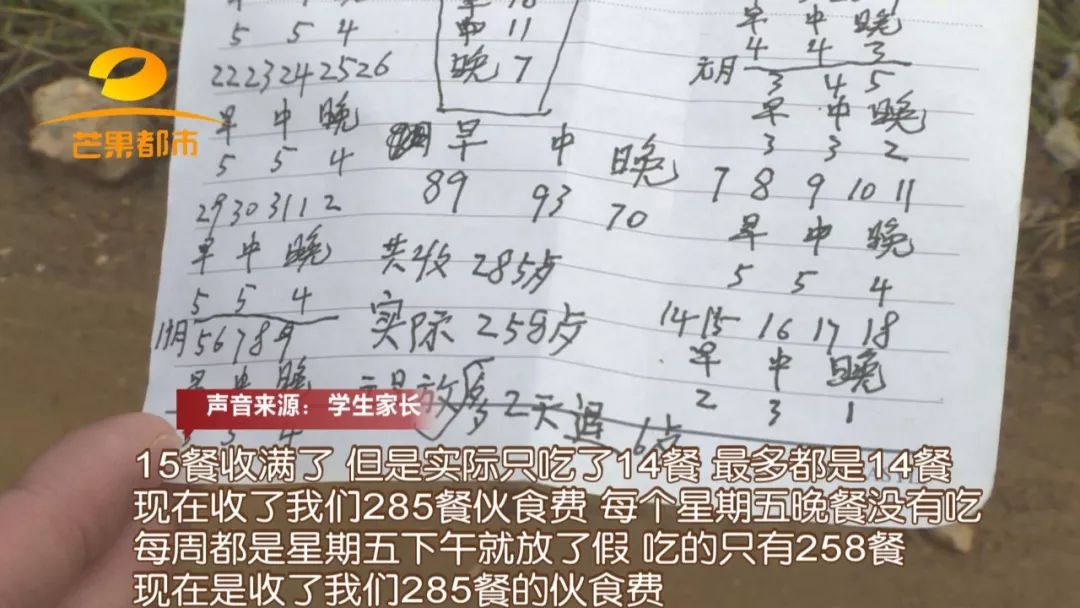 中 11
晚 7
5 5 4
22 23 24 25 26
早 中 晚
5 5 4
29 30 31 1 2
早 中 晚
5 5 4
5 6 7 8 9
早 中 晚
5 4
早 中 晚
89 93 70
共收 285点
实际 258点
2天退 6点
早 中 晚
4 4 3
元月 3 4 5
早 中 晚
3 3 2
7 8 9 10 11
早 中 晚
5 5 4
14 15 16 17 18
早 中 晚
2 3 1
芒果都市
声音来源： 学生家长
15餐收满了 但是实际只吃了14餐 最多都是14餐
现在收了我们285餐伙食费 每个星期五晚餐没有吃
每周都是星期五下午就放了假 吃的只有258餐
现在是收了我们285餐的伙食费